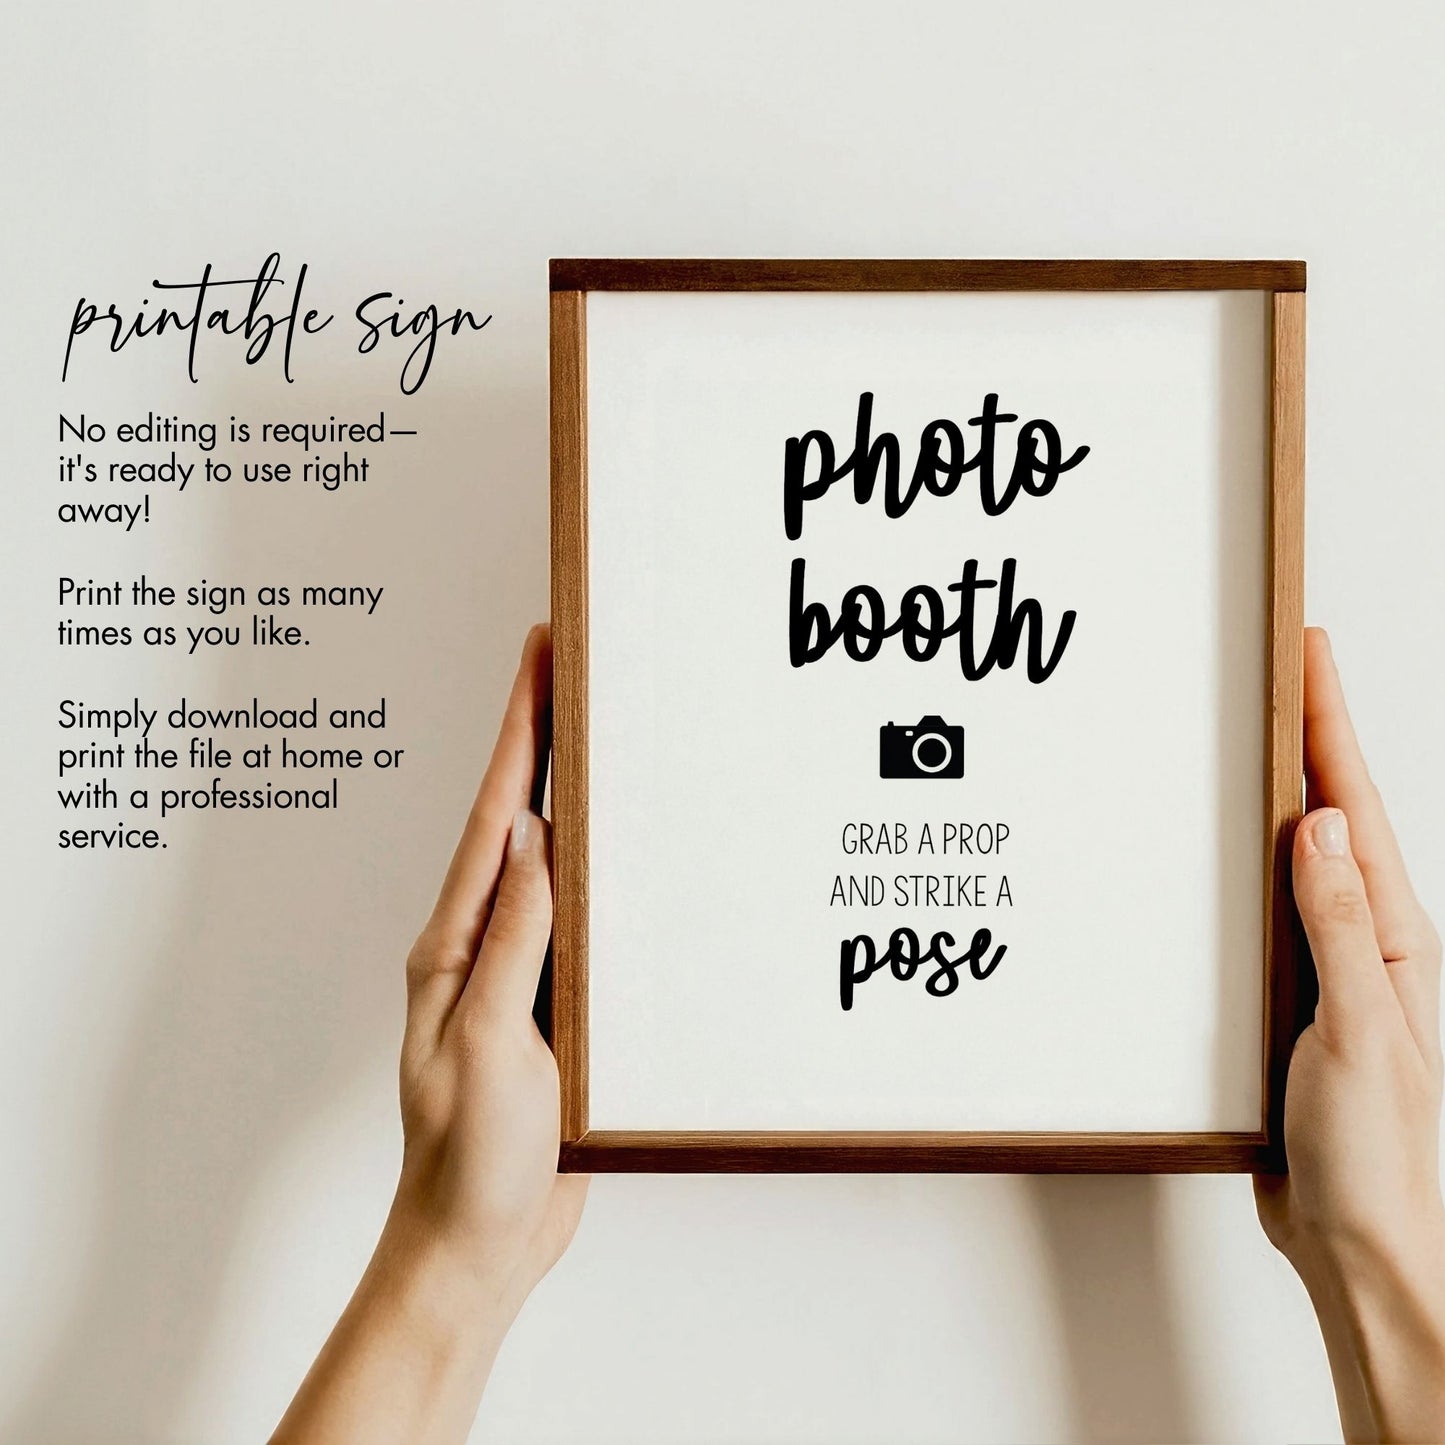 printable sign
No editing is required—
it's ready to use right
away!
Print the sign as many
times as you like.
Simply download and
print the file at home or
with a professional
service.
photo
booth
GRAB A PROP
AND STRIKE A
pose